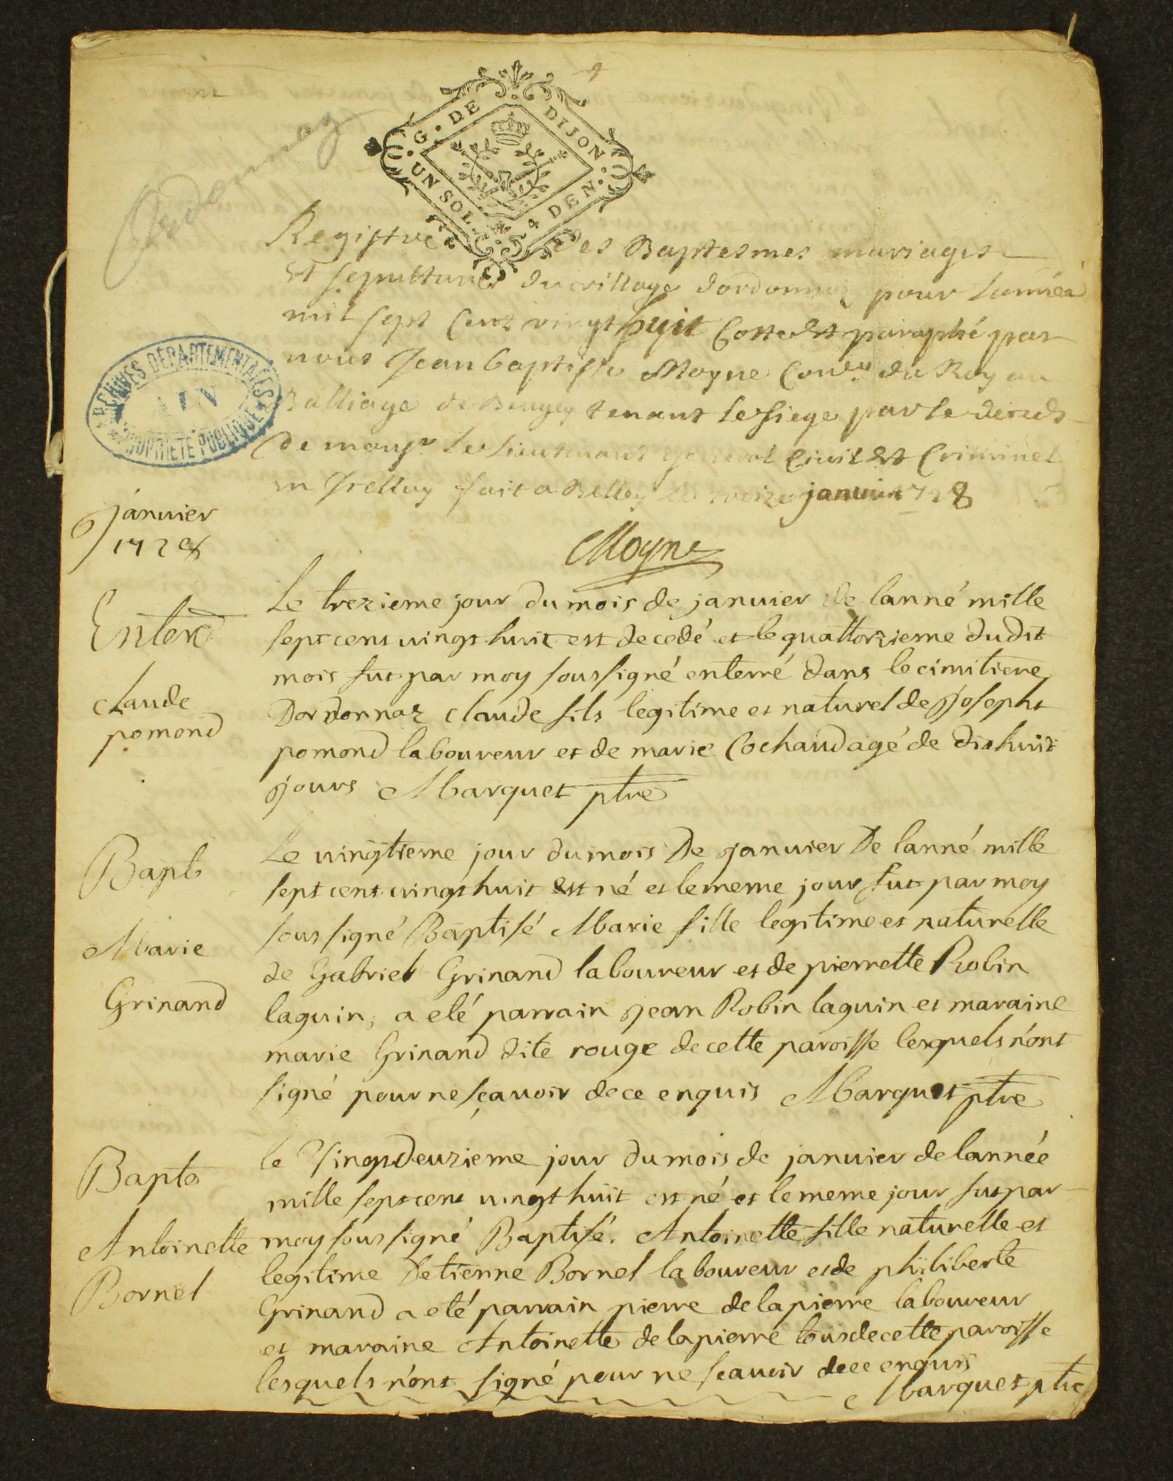 4
Ordonnaz
G. DE DIJON
UN SOL 4 DEN.
Registre des Baptesmes mariages
Et sepultures du village dordonnaz pour Lannéé
mil sept Cent vingt huit Cotté Et paraphé par
nous Jean baptiste Moyne Con.er du Roy au
Balliage de Beugey tenant le siege par le deceds
de monsr. le Lieutenant general Civil Et Criminel
fait a Belley janvier 1728
Moyne
ARCHIVES DÉPARTEMENTALES
AIN
PROPRIÉTÉ PUBLIQUE
janvier
1728
Enter
claude
pomond
Le trezieme jour du mois de janvier de lanné mille
sept cent vingt huit est decedé et le quattorzieme dudit
mois fut par moy soussigné enterré dans le cimitiere
Dordonnaz claude fils legitime et naturel de joseph
pomond laboureur et de marie Cochaud agé de dix huit
jours Marquet ptre
Bapt
Marie
Grinand
Le vingtieme jour du mois De janvier De lanné mille
sept cent vingt huit est né et le meme jour fut par moy
sous signé Baptisé Marie fille legitime et naturelle
de Gabriel Grinand laboureur et de pierrette Robin
laguin, a eté parrain jean Robin laguin et maraine
marie Grinand dite rouge de cette paroisse lesquels n'ont
signé pour ne sçavoir de ce enquis Marquet ptre
Bapt
Antoinette
Bornel
le Vingt Deuzieme jour du mois de janvier de lannée
mille sept cent vingt huit est né et le meme jour fut par
moy sous signé Baptisé. Antoinette fille naturelle et
legitime Detienne Bornel laboureur et de philiberte
Grinand a eté parrain pierre delapierre laboureur
et maraine Antoinette delapierre tous de cette paroisse
lesquels n'ont signé pour ne scavoir de ce enquis
Marquet ptre